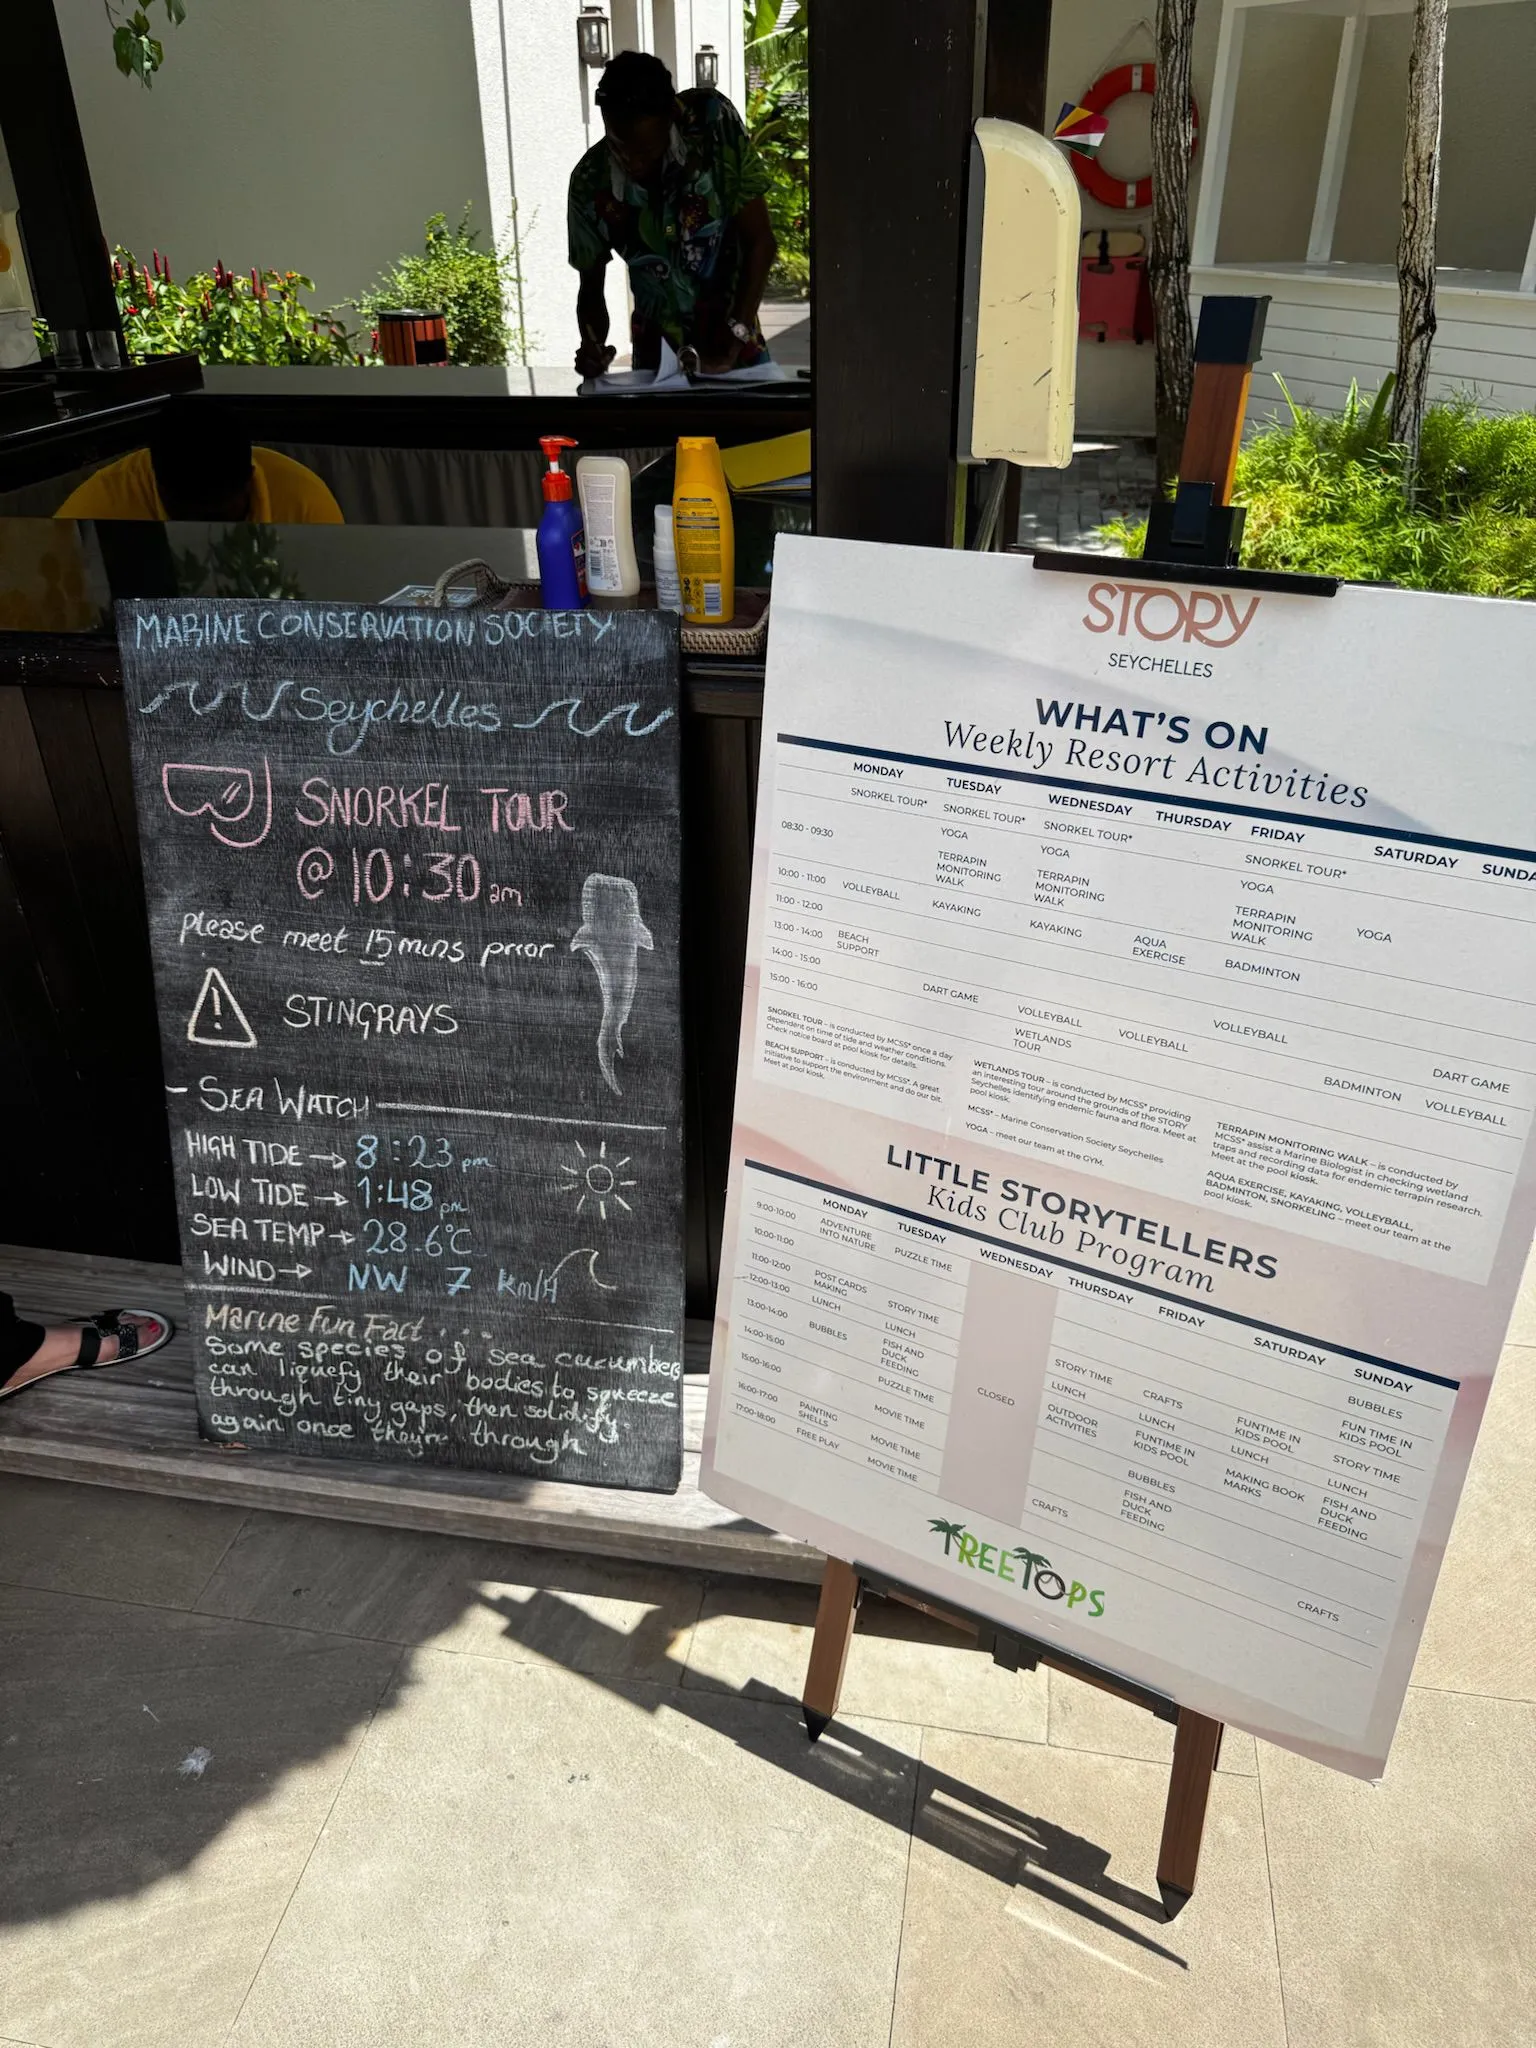 MARINE CONSERVATION SOCIETY
Seychelles
SNORKEL TOUR
@ 10:30 am
please meet 15 mins prior
! STINGRAYS
SEA WATCH
HIGH TIDE → 8:23 pm
LOW TIDE → 1:48 pm
SEA TEMP → 28.6°C
WIND → NW 7 km/H
Marine Fun Fact...
Some species of sea cucumbers
can liquefy their bodies to squeeze
through tiny gaps, then solidify
again once they're through
STORY
SEYCHELLES
WHAT'S ON
Weekly Resort Activities
MONDAY TUESDAY WEDNESDAY THURSDAY FRIDAY SATURDAY SUNDA
SNORKEL TOUR* SNORKEL TOUR* SNORKEL TOUR* SNORKEL TOUR*
08:30 - 09:30 YOGA YOGA YOGA YOGA
10:00 - 11:00 VOLLEYBALL TERRAPIN MONITORING WALK TERRAPIN MONITORING WALK TERRAPIN MONITORING WALK
11:00 - 12:00 KAYAKING KAYAKING AQUA EXERCISE BADMINTON
13:00 - 14:00 BEACH SUPPORT
14:00 - 15:00 DART GAME VOLLEYBALL VOLLEYBALL VOLLEYBALL DART GAME
15:00 - 16:00 WETLANDS TOUR BADMINTON VOLLEYBALL
SNORKEL TOUR – is conducted by MCSS* once a day
dependent on time of tide and weather conditions.
Check notice board at pool kiosk for details.
BEACH SUPPORT – is conducted by MCSS*. A great
initiative to support the environment and do our bit.
Meet at pool kiosk.
WETLANDS TOUR – is conducted by MCSS* providing
an interesting tour around the grounds of the STORY
Seychelles identifying endemic fauna and flora. Meet at
pool kiosk.
MCSS* – Marine Conservation Society Seychelles
YOGA – meet our team at the GYM.
TERRAPIN MONITORING WALK – is conducted by
MCSS* assist a Marine Biologist in checking wetland
traps and recording data for endemic terrapin research.
Meet at the pool kiosk.
AQUA EXERCISE, KAYAKING, VOLLEYBALL,
BADMINTON, SNORKELING – meet our team at the
pool kiosk.
LITTLE STORYTELLERS
Kids Club Program
MONDAY TUESDAY WEDNESDAY THURSDAY FRIDAY SATURDAY SUNDAY
9:00-10:00 ADVENTURE INTO NATURE PUZZLE TIME
10:00-11:00
11:00-12:00 POST CARDS MAKING STORY TIME STORY TIME CRAFTS BUBBLES
12:00-13:00 LUNCH LUNCH LUNCH LUNCH FUNTIME IN KIDS POOL FUN TIME IN KIDS POOL
13:00-14:00 BUBBLES FISH AND DUCK FEEDING OUTDOOR ACTIVITIES FUNTIME IN KIDS POOL LUNCH STORY TIME
14:00-15:00 PUZZLE TIME MAKING BOOK MARKS LUNCH
15:00-16:00 MOVIE TIME CLOSED BUBBLES FISH AND DUCK FEEDING
16:00-17:00 PAINTING SHELLS MOVIE TIME CRAFTS FISH AND DUCK FEEDING
17:00-18:00 FREE PLAY MOVIE TIME CRAFTS
TREETOPS